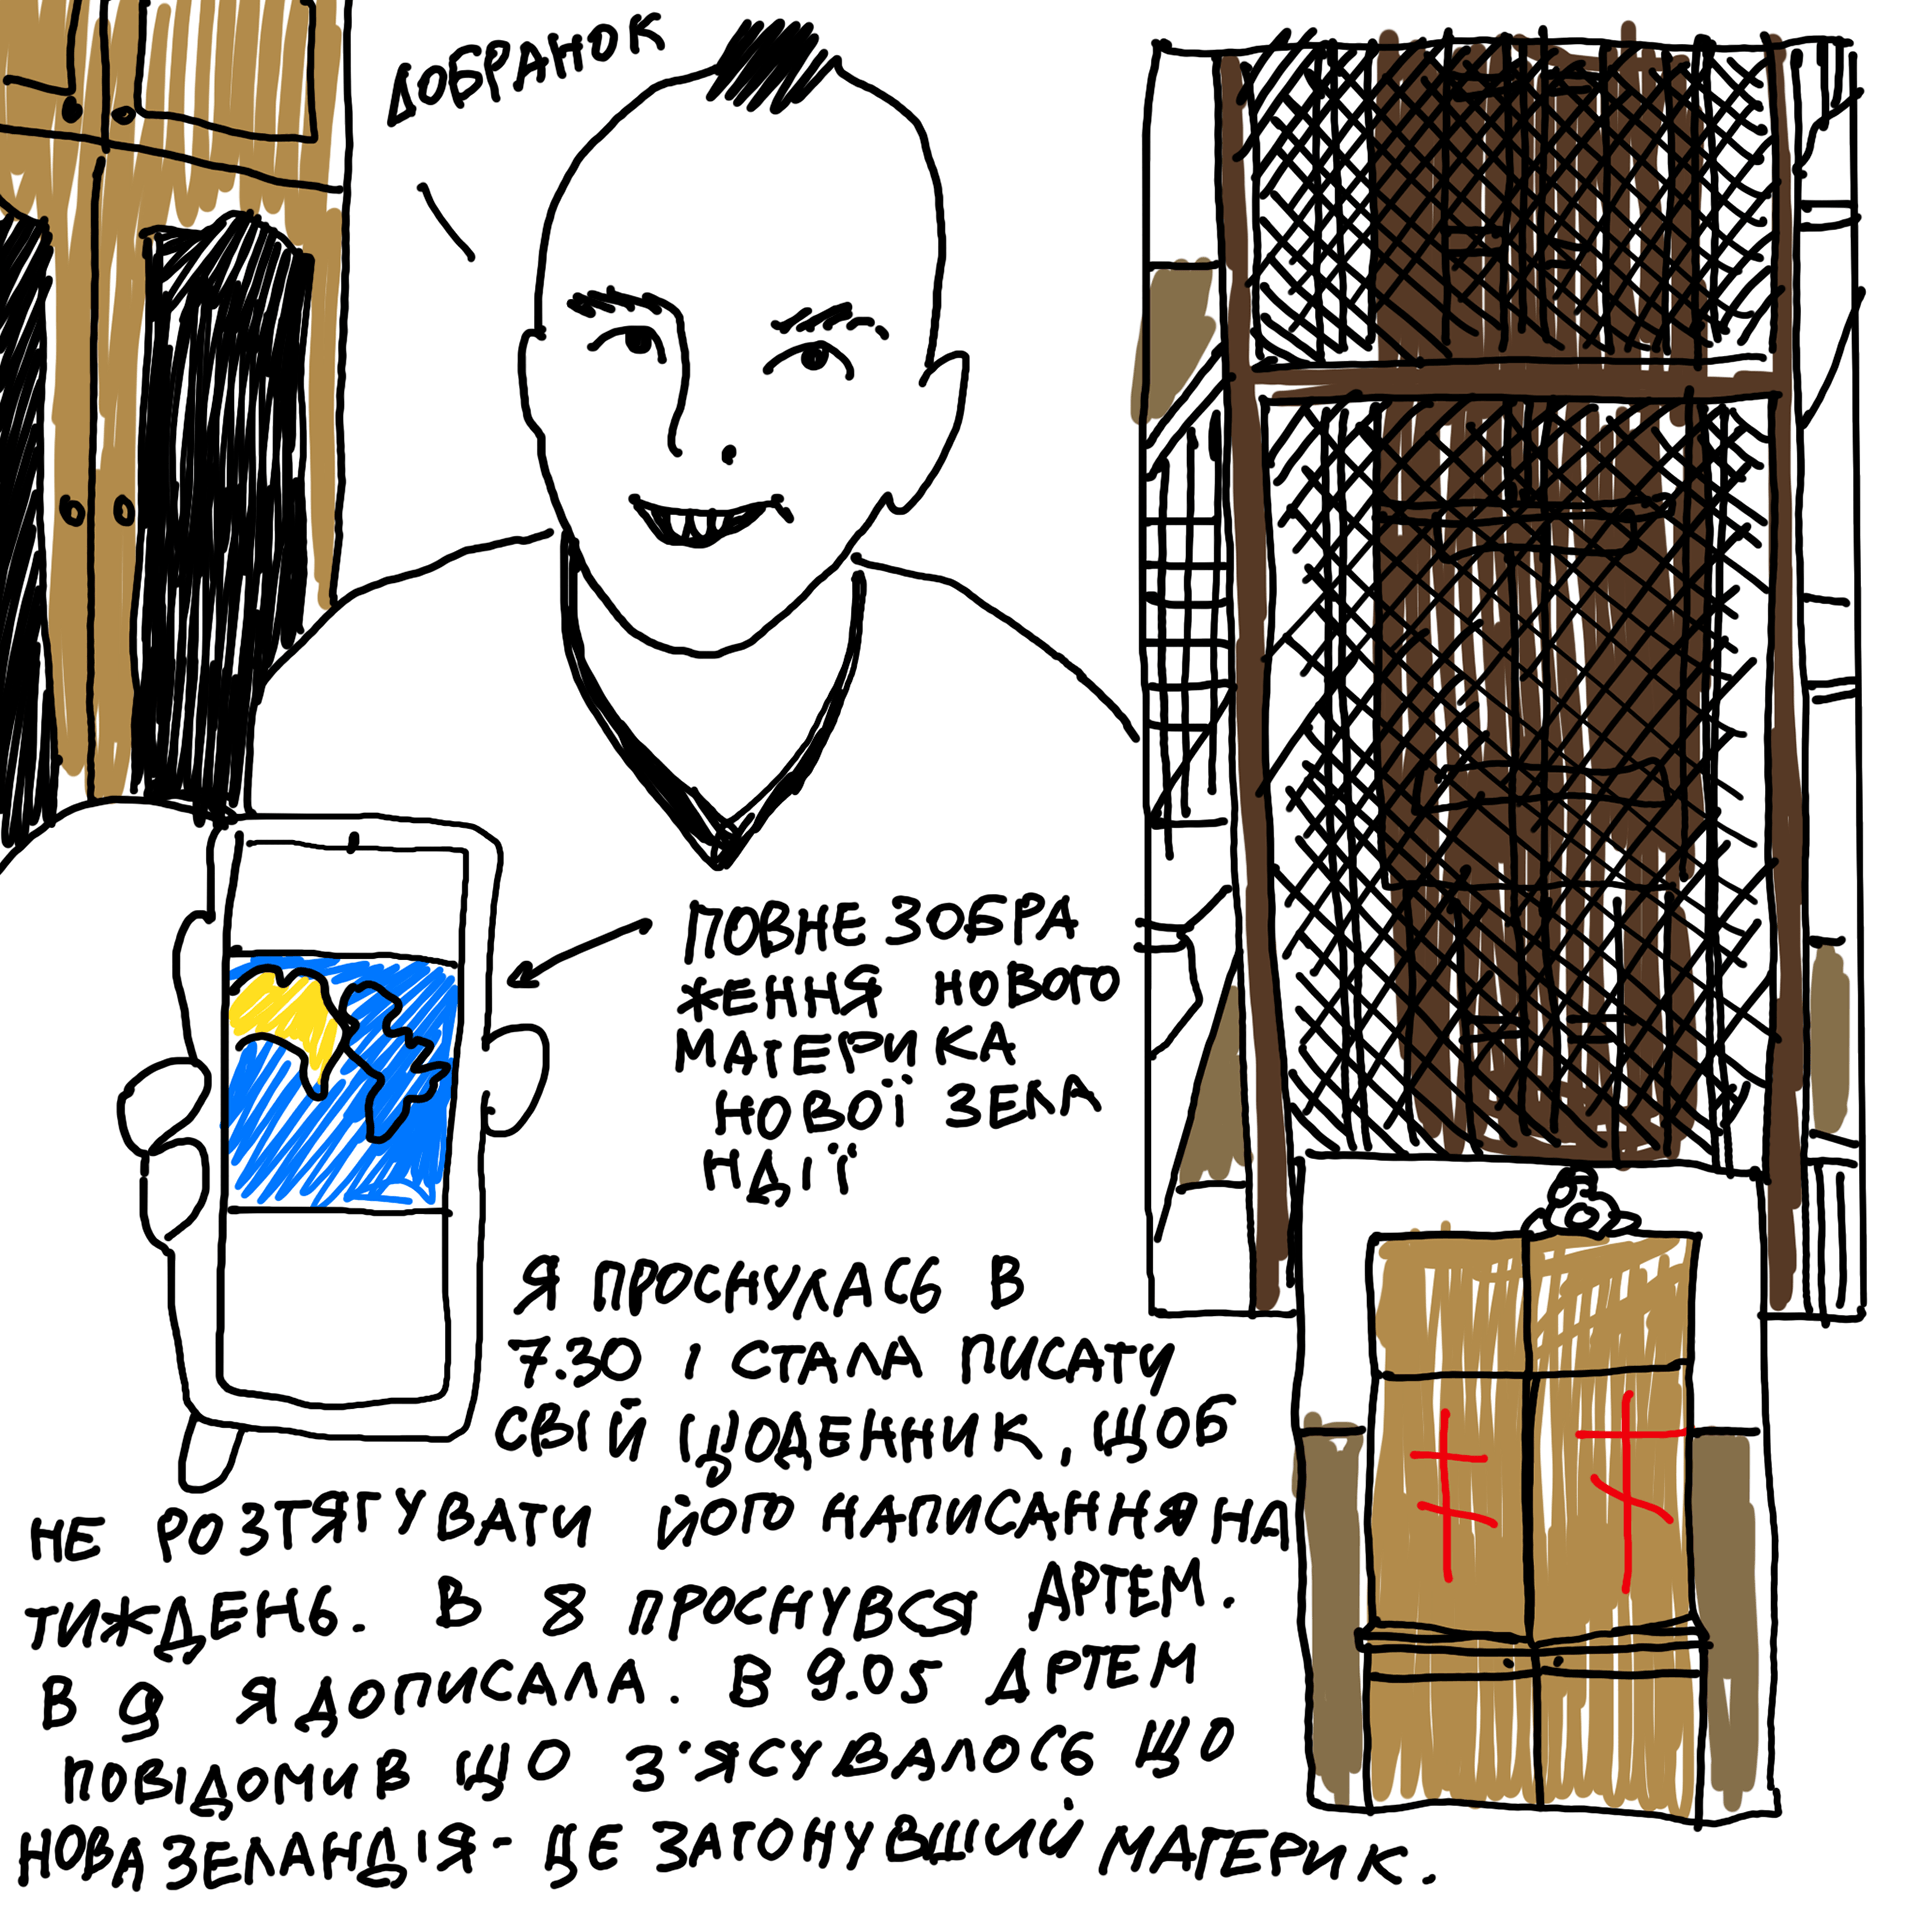 ДОБРАНОК
ПОВНЕ ЗОБРА
ЖЕННЯ НОВОГО
МАТЕРИКА
НОВОЇ ЗЕЛА
НДІЇ
Я ПРОСНУЛАСЬ В
7.30 І СТАЛА ПИСАТИ
СВІЙ ЩОДЕННИК, ЩОБ
НЕ РОЗТЯГУВАТИ ЙОГО НАПИСАННЯ НА
ТИЖДЕНЬ. В 8 ПРОСНУВСЯ АРТЕМ.
В 9 Я ДОПИСАЛА. В 9.05 АРТЕМ
ПОВІДОМИВ ЩО З'ЯСУВАЛОСЬ ЩО
НОВА ЗЕЛАНДІЯ - ЦЕ ЗАТОНУВШИЙ МАТЕРИК.